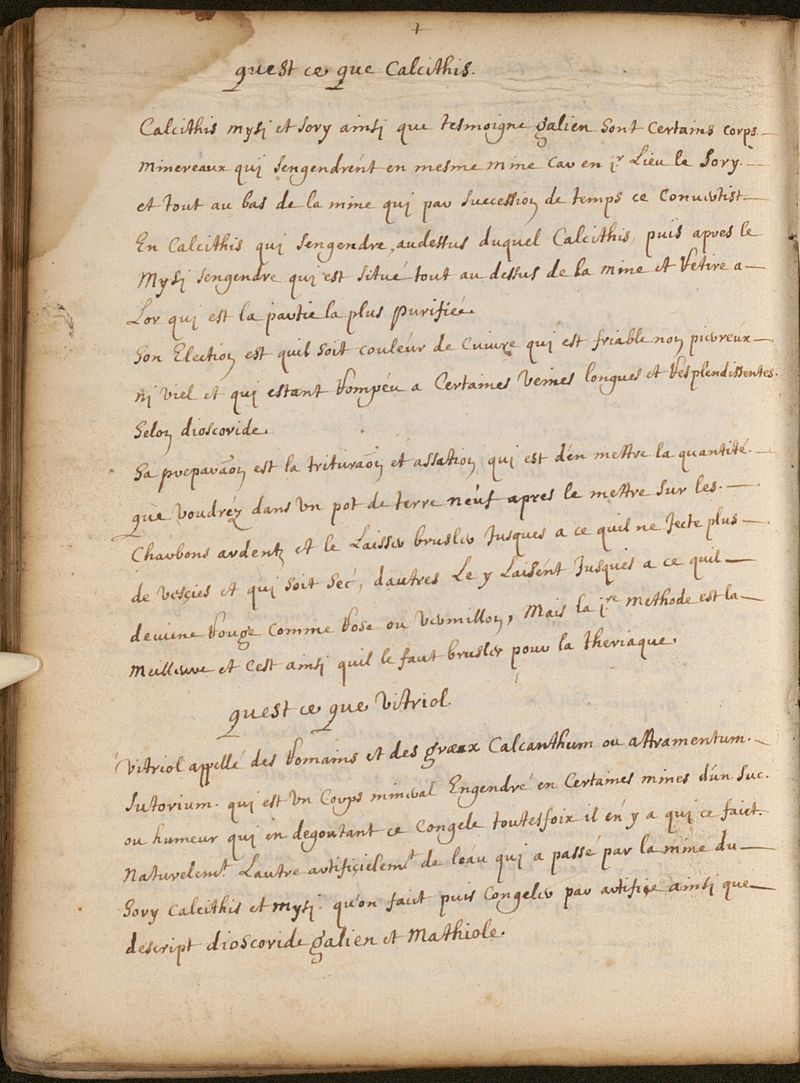 quest ce que Calcithis.
Calcithis mysi et sory ainsi que tesmoigne galien sont certains corps
minereaux qui sengendrent en mesme mine car en jr Lieu le sory.
et tout au bas de la mine qui par succession de temps ce convertist
En Calcithis qui sengendre, audessus duquel Calcithis, puis apres le
Mysi sengendre qui est situé tout au dessus de la mine et retire a
Lor qui est la partie la plus purifiée.
Son Election est quil soit couleur de cuivre qui est friable non pierreux
nj viel et qui estant rompeu a certaines veines longues et resplendissentes.
Selon dioscoride.
Sa preparaõn est la trituraõn et assation qui est d'en mettre la quantité.
que voudréz dans un pot de terre neuf apres le mettre sur les.
Charbons ardentz et le Laisser brusler jusques a ce quil ne jecte plus
de vescies et qui soit sec, dautres Le y Laisent jusques a ce quil
devienne rouge comme rose ou vermillon, Mais la jre methode est la
Meilleure et cest ainsi quil le faut brusler pour la theriaque.
quest ce que Vitriol.
Vitriol appellé des romains et des græx Calcanthum ou attramentum.
Sutorium. qui est un Corps mineral Engendré en certaines mines d'un suc.
ou humeur qui en degoutant ce congele toutesfoix il en y a qui ce faict.
Naturelemt. L'autre artificielemt de leau qui a passé par la mine du
Sory Calcithis et mysi. qu'on faict puis Congeler par artifice ainsi que
descript dioscoride galien et Mathiole.